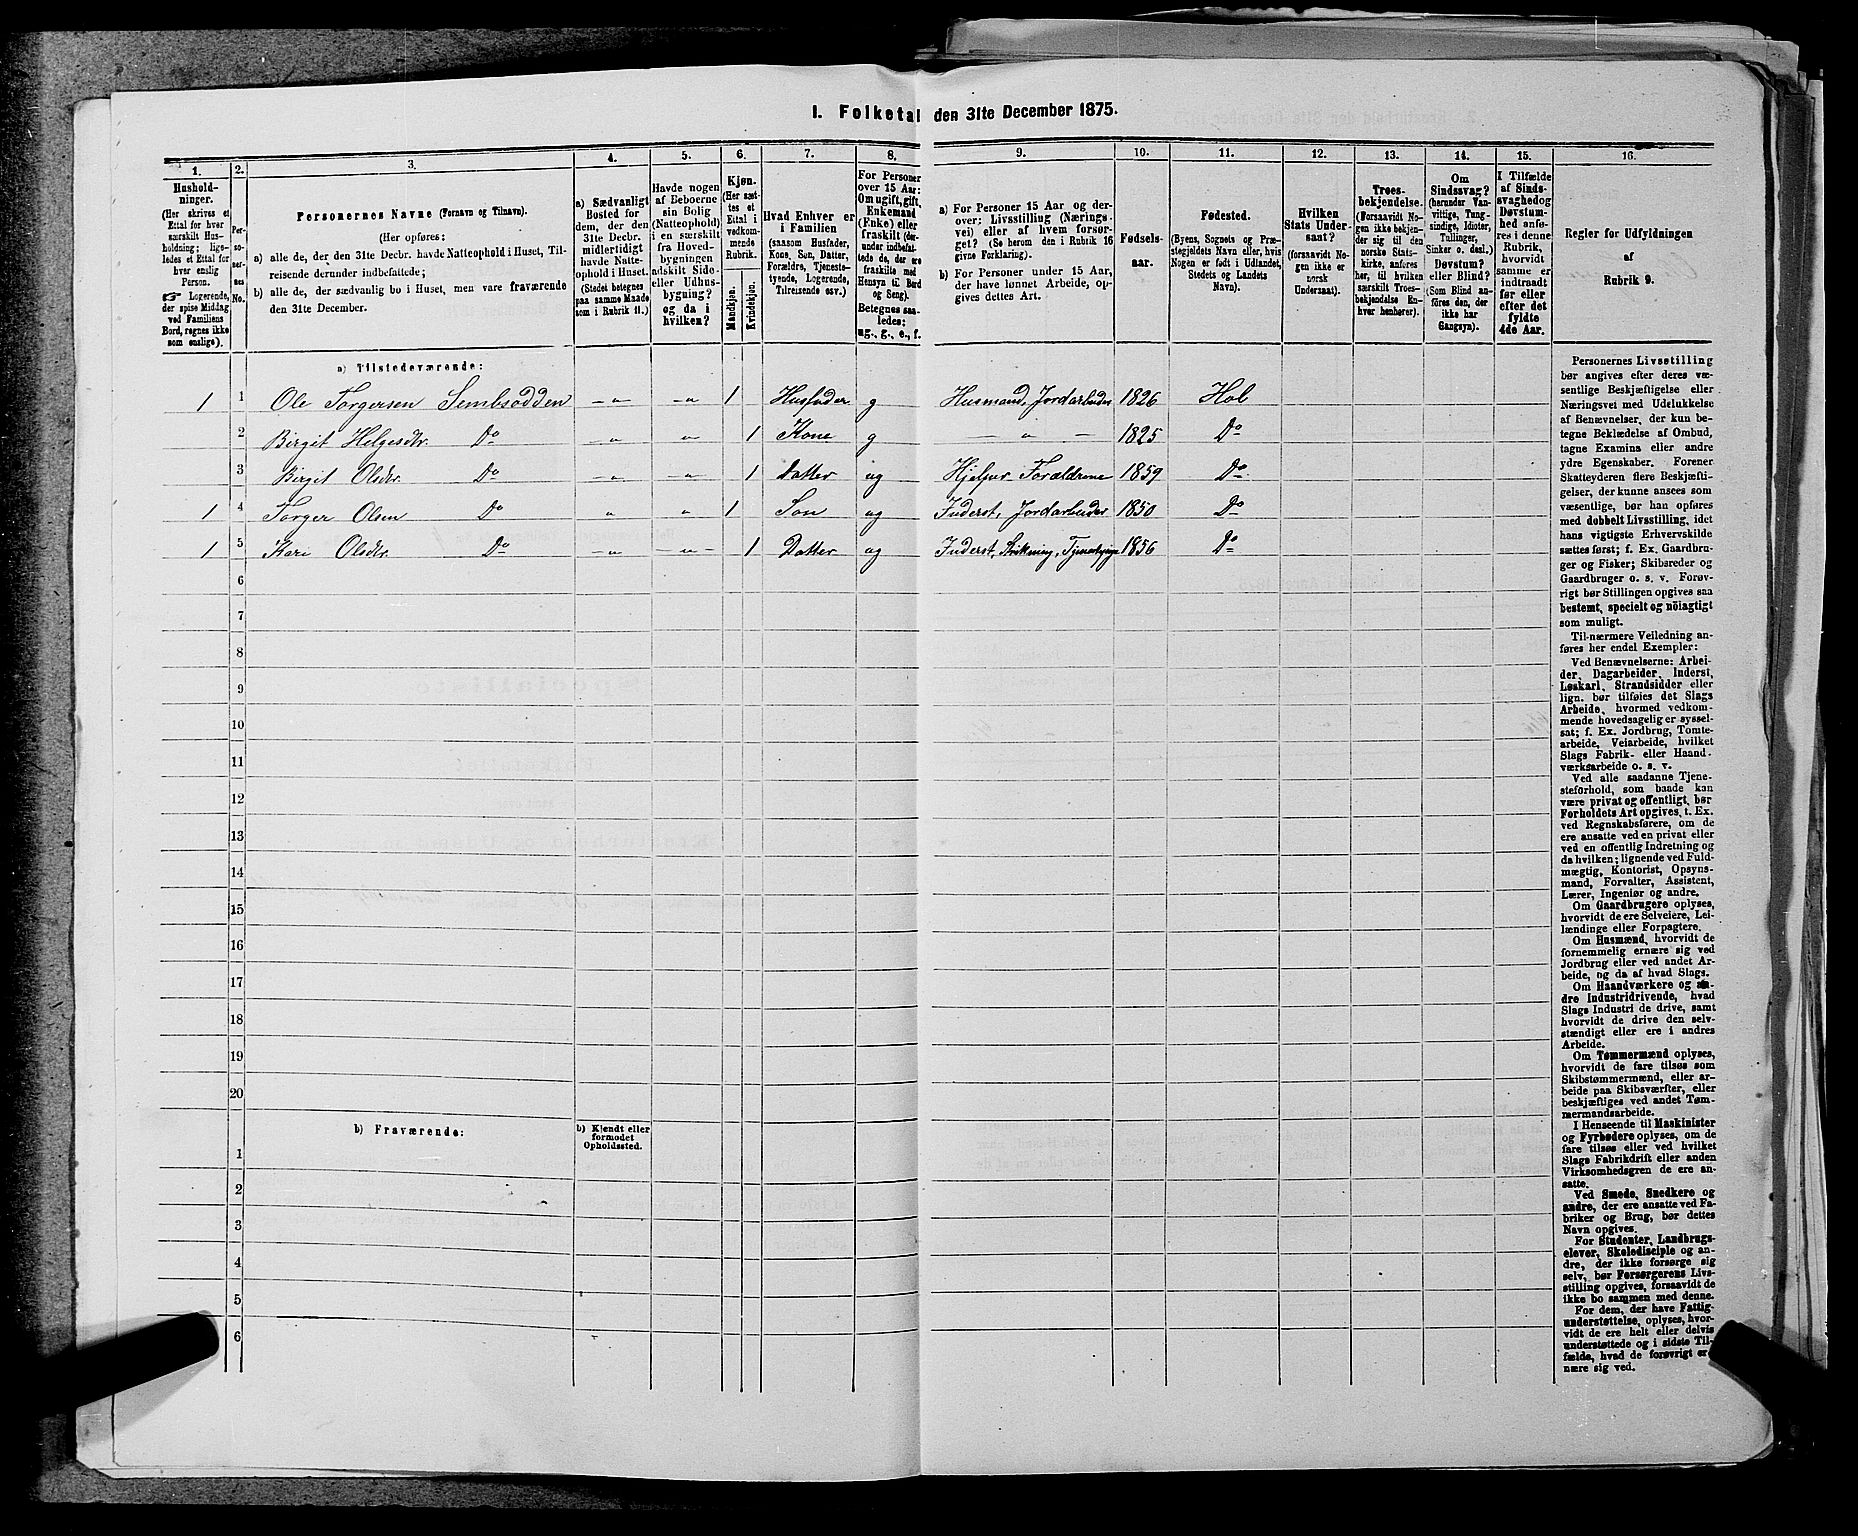 I. Folketal den 31te December 1875.
1.
2.
3.
4.
5.
6.
7.
8.
9.
10.
11.
12.
13.
14.
15.
16.
Hushold-
ninger.
(Her skrives et
Ettal for hver
særskilt Hus-
holdning; lige-
ledes et Ettal for
hver enslig
Person.
☞ Logerende,
der spise Middag
ved Familiens
Bord, regnes ikke
som enslige).
Per-
so-
ner-
nes
No.
Personernes Navne (Fornavn og Tilnavn).
(Her opføres:
a) alle de, der den 31te Decbr. havde Natteophold i Huset, Til-
reisende derunder indbefattede;
b) alle de, der sædvanlig bo i Huset, men vare fraværende
den 31te December.
a) Sædvanligt
Bosted for
dem, der den
31te Decbr.
midlertidigt
havde Natte-
ophold i Huset.
(Stedet betegnes
paa samme Maade
som i Rubrik 11.)
Havde nogen
af Beboerne
sin Bolig
(Natteophold)
i en særskilt
fra Hoved-
bygningen
adskilt Side-
eller Udhus-
bygning?
og da i
hvilken?
Kjøn.
(Her sæt-
tes et
Ettal i
vedkom-
mende
Rubrik.
Mandkjøn.
Kvindekjøn.
Hvad Enhver er
i Familien
(saasom Husfader,
Kone, Søn, Datter,
Forældre, Tjeneste-
tyende, Logerende,
Tilreisende osv.)
For Personer
over 15 Aar:
Om ugift, gift,
Enkemand
(Enke) eller
fraskilt (der-
under indbefat-
tede de, der ere
fraskilte med
Hensyn til Bord
og Seng).
Betegnes saa-
ledes:
ug., g., e., f.
a) For Personer 15 Aar og der-
over: Livsstilling (Nærings-
vei) eller af hvem forsør-
get? (Se herom den i Rubrik 16
givne Forklaring).
b) For Personer under 15 Aar,
der have lønnet Arbeide, op-
gives dettes Art.
Fødsels-
aar.
Fødested.
(Byens, Sognets og Præ-
stegjeldets Navn eller, hvis
Nogen er født i Udlandet,
Stedets og Landets
Navn).
Hvilken
Stats Under-
saat?
(forsaavidt No-
gen ikke er
norsk
Undersaat).
Troes-
bekjendelse.
(Forsaavidt No-
gen ikke bekjen-
der sig til den
norske Stats-
kirke, anføres
her, til hvilken
særskilt Troes-
bekjendelse En-
hver henhører).
Om
Sindssvag?
(herunder Van-
vittige, Tung-
sindige, Idioter,
Tullinger,
Sinker o. desl.)
Døvstum?
eller Blind?
(Som Blind an-
føres den, der
ikke har
Gangsyn).
I Tilfælde
af Sinds-
svaghed og
Døvstum-
hed anfø-
res i denne
Rubrik,
hvorvidt
samme er
indtraadt
før eller
efter det
fyldte
4de Aar.
Regler for Udfyldningen
af
Rubrik 9.
a) Tilstedeværende:
1 1 Ole Torgersen Sembsødden — " — — " — 1 Husfader g Husmand, Jordarbeider 1826 Hol
2 Birgit Helgesdtr. Do — " " — 1 Kone g — " — 1825 Do
3 Birgit Olsdtr. Do — " — — " — 1 Datter ug Hjelper Forældrene 1859 Do
1 4 Torger Olsen Do " " 1 Søn ug Inderst, Jordarbeider 1850 Do
1 5 Kari Olsdtr. Do — " — — " — 1 Datter ug Inderst, Strikning, 1856 Do
6
7
8
9
10
11
12
13
14
15
16
17
18
19
20
b) Fraværende:
b) Kjendt eller
formodet
Opholdssted.
1
2
3
4
5
6
Personernes Livsstilling
bør angives efter deres væ-
sentlige Beskjæftigelse eller
Næringsvei med Udelukkelse
af Benævnelser, der kun be-
tegne Beklædelse af Ombud,
tagne Examina eller andre
ydre Egenskaber. Forener
Skatteyderen flere Beskjæfti-
gelser, der kunne ansees som
væsentlige, bør han opføres
med dobbelt Livsstilling, idet
hans vigtigste Erhvervskilde
sættes først; f. Ex. Gaardbru-
ger og Fisker; Skibsreder og
Gaardbruger o. s. v. Forøv-
rigt bør Stillingen opgives saa
bestemt, specielt og nöiagtigt
som muligt.
Til nærmere Veiledning an-
føres her endel Exempler:
Ved Benævnelserne: Arbei-
der, Dagarbeider, Inderst,
Løskarl, Strandsidder eller
lign. bør tilføies det Slags
Arbeide, hvormed vedkom-
mende hovedsagelig er syssel-
sat; f. Ex. Jordbrug, Tomte-
arbeide, Veiarbeide, hvilket
Slags Fabrik- eller Haand-
værksarbeide o. s. v.
Ved alle saadanne Tjene-
steforhold, som baade kan
være privat og offentligt, bør
Forholdets Art opgives, t. Ex.
ved Regnskabsførere, om de
ere ansatte ved en privat eller
ved en offentlig Indretning og
da hvilken; lignende ved Fuld-
mægtig, Kontorist, Opsyns-
mand, Forvalter, Assistent,
Lærer, Ingeniør og andre.
Om Gaardbrugere oplyses,
hvorvidt de ere Selveiere, Lei-
lændinge eller Forpagtere.
Om Husmænd, hvorvidt de
fornemmelig ernære sig ved
Jordbrug eller ved andet Ar-
beide, og da af hvad Slags.
Om Haandværkere og an-
dre Industridrivende, hvad
Slags Industri de drive, samt
hvorvidt de drive den selv-
stændigt eller ere i andres
Arbeide.
Om Tømmermænd oplyses,
hvorvidt de fare tilsøs som
Skibstømmermænd, eller ar-
beide paa Skibsværfter, eller
beskjæftiges ved andet Tøm-
mermandsarbeide.
I Henseende til Maskinister
og Fyrbødere oplyses, om de
fare tilsøs eller ved hvilket
Slags Fabrikdrift eller anden
Virksomhedsgren de ere an-
satte.
Ved Smede, Snedkere og
andre, der ere ansatte ved Fa-
briker og Brug, bør dettes
Navn opgives.
For Studenter, Landbrugs-
elever, Skoledisciple og an-
dre, der ikke forsørge sig
selv, bør Forsørgerens Livs-
stilling opgives, forsaavidt de
ikke bo sammen med denne.
For dem, der have Fattig-
understøttelse, oplyses, hvor-
vidt de ere helt eller delvis
understøttede og i sidste Til-
fælde, hvad de forøvrigt er-
nære sig ved.